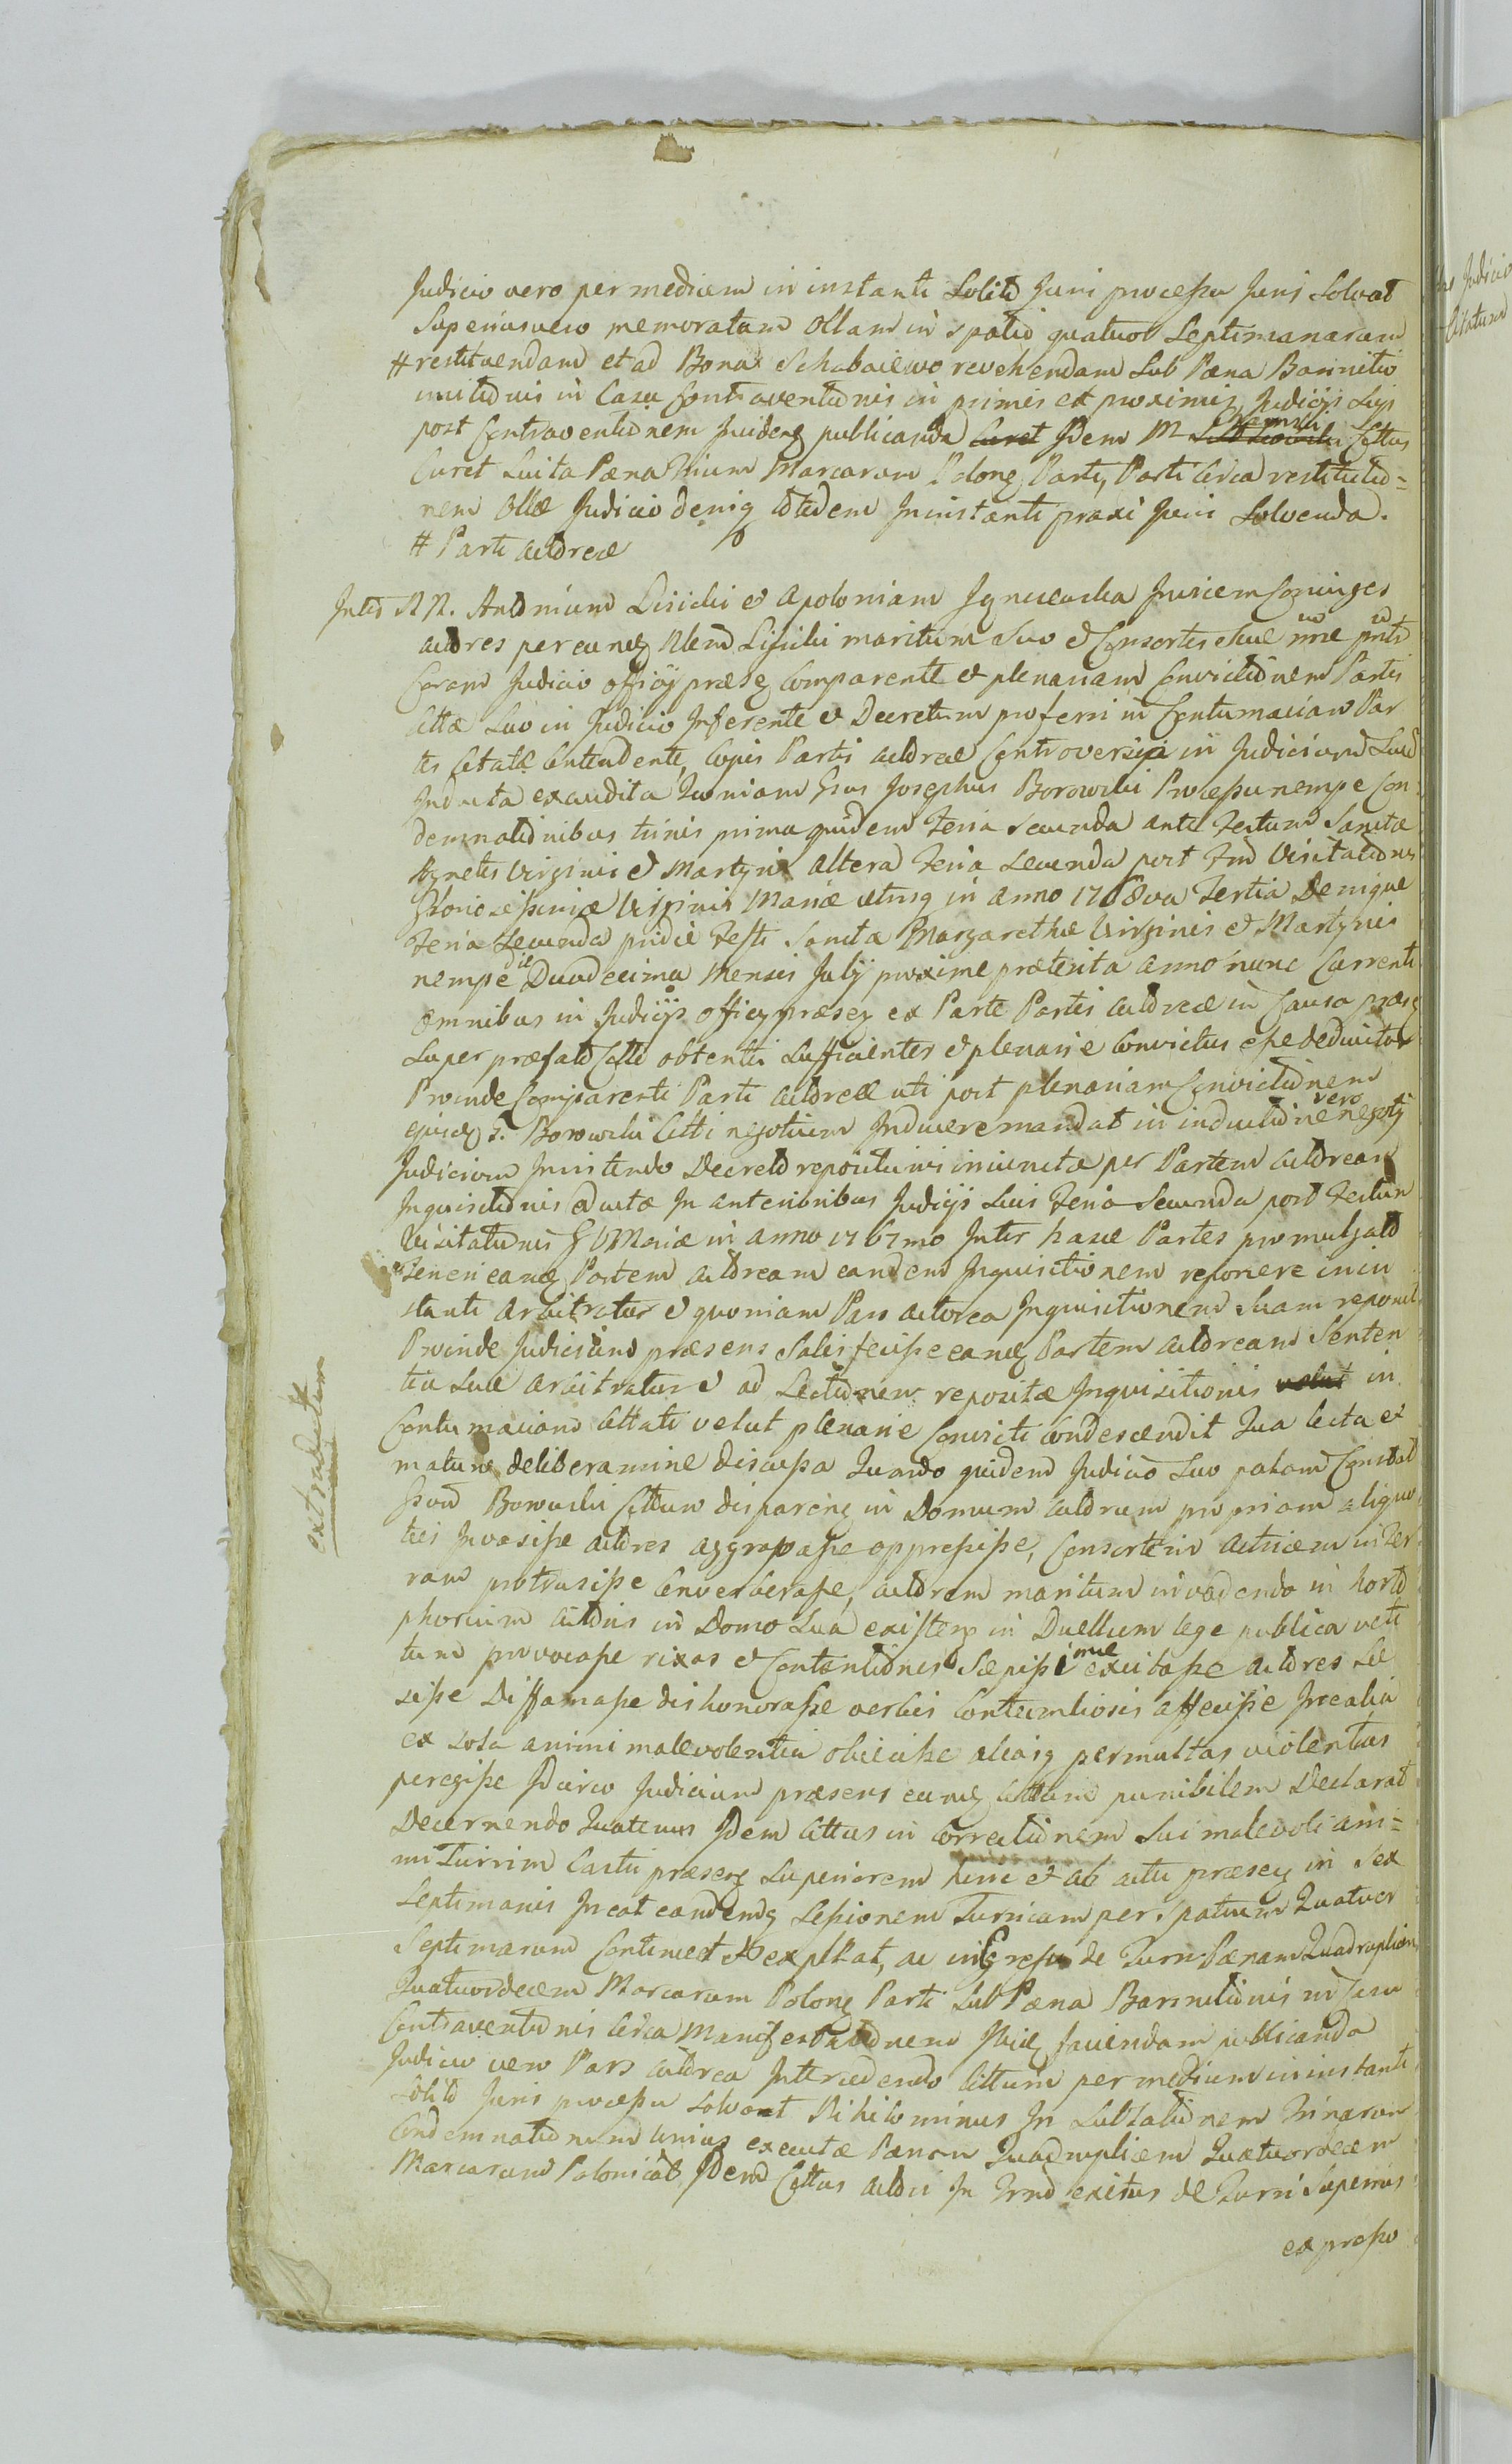 Judicio vero per mediem in instanti Solito Juri processu Juris Solvat
Superiusvero memoratam Ollam in spatio quatuor Septimanarum
# restituendam et ad Bona revehendam Sub Pæna Bannitio
in Casu Contraventionis in primis et proximis Judicijs Suis
post Contraventionem publicanda Curet Idem M Cittus
Curet Luita Pæna trium Marcarum Polong Parti, Parti Circa restitutio=
nem Ollæ Judicio deniq totidem Ininstanti praxi Juris Solvenda.
# Parti actoreæ
Inter NN. Antonium Lisicki et Apoloniam Invicem Conjuges
actores per eunq Nlem Lisicki maritum Suo et Consortis Suæ nne
Coram Judicio officij præseq Comparente et plenariam Convictionem Partis
Cittæ Suo in Judicio Inferente et Decretum proferri in Contumaciam Par
tis Citatæ Contendente, Cujus Partis actoreæ Controversia in Judicium Suu
Inducta exaudita Quoniam Gsus Josephus Borowski Processu nempe Con-
demnationibus trinis prima quidem Feria Secunda ante Festum Sanctæ
Agnetis Virginis et Martyris altera Feria Secunda post Fm Visitationis
Gloriosissimæ Virginis Mariæ utriusq in Anno 1768va Tertia Denique
Feria Secunda pridie Festi Sanctæ Margarethæ Virginis et Martyris
nempe die Duodecima Mensis Julij proxime præterita anno nunc Currenti
Omnibus in Judicijs officij præseq ex Parte Partis actoreæ in Causa præseq
Super præfato Citto obtentis Sufficienter et plenarie Convictus esse deducitur
Proinde Comparenti Parti actoreæ uti post plenariam Convictionem
ejusdq G. Borowski Citti negotium Inducere mandat in inductione vero negotij
Judicium Innitendo Decreto repositionis iniuncta per Partem actoream
Inquisitionis eductæ In anterioribus Judicijs Suis Feria Secunda post Festum
Visitationis G V Mariæ in anno 1767mo Inter hasce Partes promulgato
Teneri eanq Partem actoream eandem Inquisitionem reponere in in
stanti arbitratur et quoniam Pars actorea Inquisitionem Suam reponit
Proinde Judicium præsens Satisfecisse eanq Partem actoream Senten
tiæ Suæ arbitratur et ad Lectionem repositæ Inquisitionis velut in
Contumaciam Cittati velut plenarie Convicti condescendit Qua lecta et
mature deliberamine discussa Quando quidem Judicio Suo palam Constat
Gsum Borowski Cittum in Domum actorum propriam aliquo
ties Invasisse actores aggravasse oppressisse, Consortem actricem in Ter
ram protrusisse Converberasse, actorem maritum invadendo in horto
actoris in Domo Sua existens in Duellum lege publica veti
tum provocasse rixas et Contentiones Sæpissime excitasse actores Læ
sisse Diffamasse dishonorasse verbis Contumliosis affecisse Irrealia
ex sola animi malevolentia obiecisse aliasq permultas violentias
peregisse Idcirco Judicium præsens eunq Cittum punibilem Declarat
Decernendo Quatenus Idem Cittus in Correctionem Sui malevoli ani=
mi Turrim Castri præseng Superiorem hinc et ab actu præseq in Sex
Septimanis Ineat eandemq Sessionem Turricam per Spatium Quatuor
Septimarum Continuet et expleat, ac in Egressu de Turri Pænam Quadruplicem
Quatuordecem Marcarum Polong Parti Sub Pæna Bannitionis in Casu
Contraventionis Circa Manifestationem faciendam publicanda
Judicio vero Pars actorea Intercedendo Cittum per medium in instanti
Solito Juris processu Solvant Nihilominus In Sublationem Trinarum
Condemnationum unius executæ Pænam Quadruplicem Quatuordecem
Marcarum Polonicat Idem Cittus actori In Trmo exitus de Turri Superius
expresso
extraditum